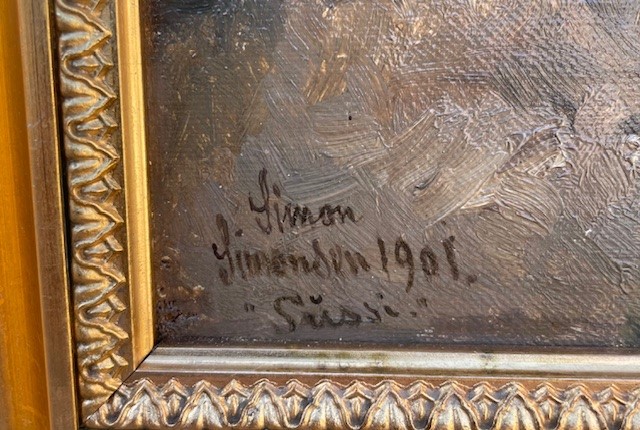 Simon
Simonsen 1901.
"Süssi."